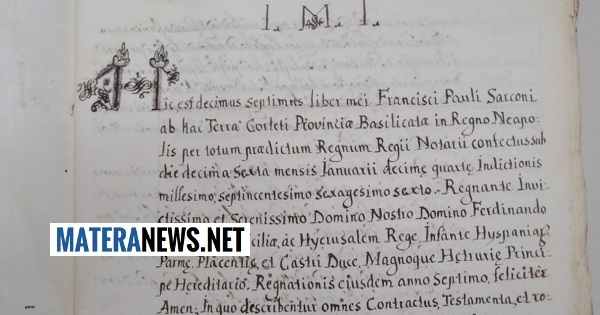 I. M. I.
Hic est decimus septimus liber mei Francisci Pauli Sarconi
ab hac Terra Gorleti Provinciæ Basilicatæ in Regno Neapo:
lis per totum prædictum Regnum Regii Notarii confectus sub
die decima sexta mensis Januarii decimę quartę Indictionis
millesimo, septincentesimo sexagesimo sexto. Regnante Invi-
ctissimo, et Serenissimo Domino Nostro Domino Ferdinando
ciliæ, àc Hyerusalem Rege, Infante Hyspaniar:
MATERANEWS.NET
Parmę, Placentię, et Castri Duce, Magnoque Hetrurię Princi-
pe Hereditario, Regnationis ejusdem anno Septimo, felicitèr
Amen; In quo describentur omnes Contractus, Testamenta, et ro-